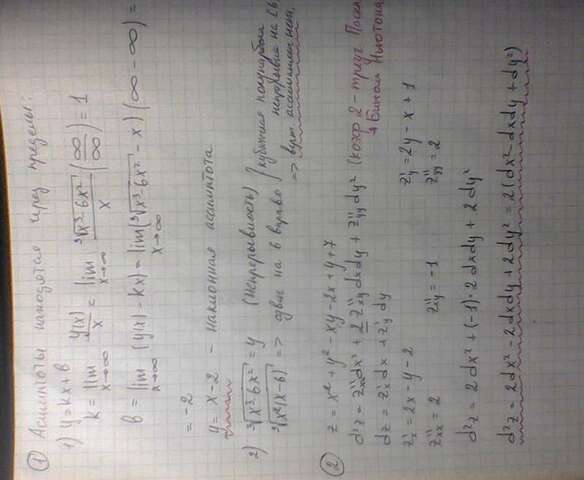 ① Асимптоты находятся через пределы:
1) y = kx + b
k = lim x→∞ y(x)/x = lim x→∞ ∛(x³-6x²)/x (∞/∞) = 1
b = lim x→∞ (y(x) - kx) = lim x→∞ (∛(x³-6x²) - x) (∞ - ∞) =
= -2
y = x-2 - наклонная асимптота
2) ∛(x³-6x²) = y (непрерывность)
∛(x²(x-6)) => сдвиг на 6 вправо
кубическая полупарабола
непрерывна на
=> верт. асимптот нет.
② z = x² + y² - xy - 2x + y + 7
d²z = z''xx dx² + 2 z''xy dxdy + z''yy dy² (коэф 2 - треуг. Паска
Бином Ньютона
dz = z'x dx + z'y dy
z'x = 2x - y - 2 z'y = 2y - x + 1
z''xx = 2 z''xy = -1 z''yy = 2
d²z = 2dx² + (-1)·2dxdy + 2dy²
d²z = 2dx² - 2dxdy + 2dy² = 2(dx² - dxdy + dy²)